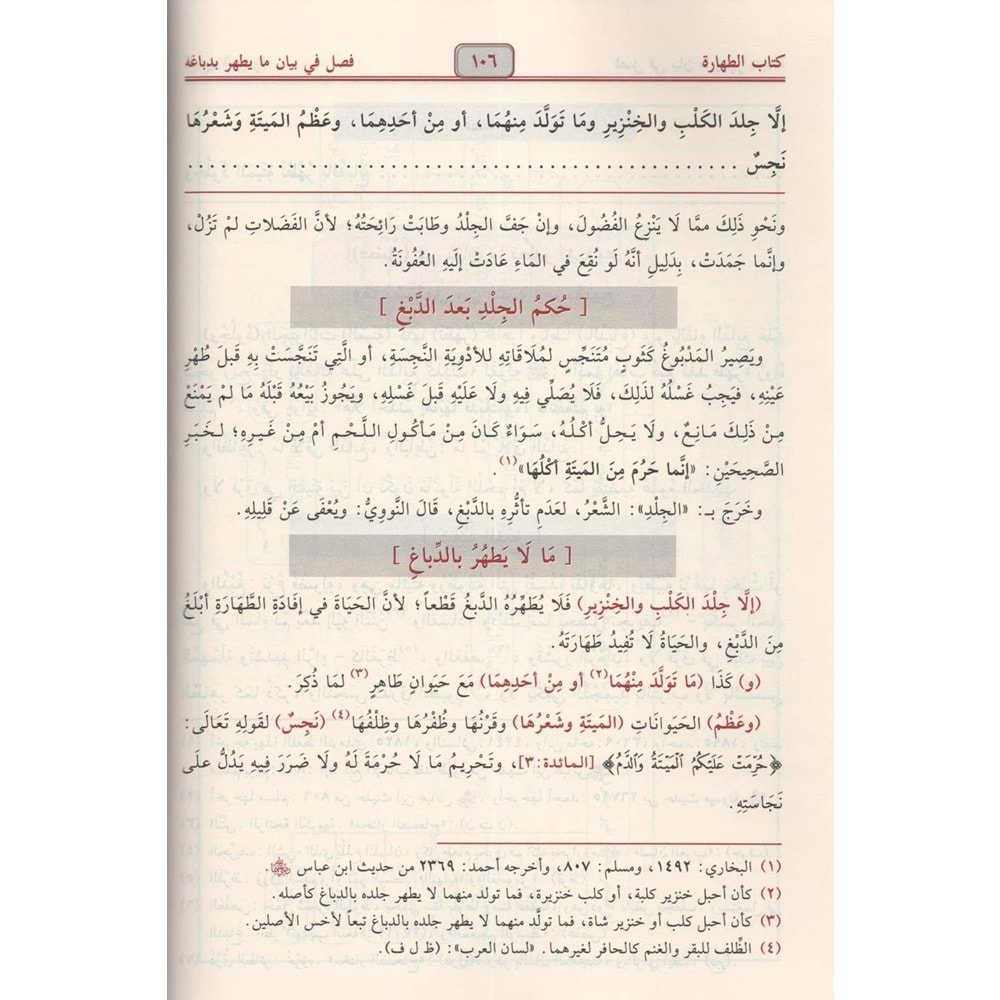 كتاب الطهارة ١٠٦ فصل في بيان ما يطهر بدباغه
إلَّا جِلدَ الكَلْبِ والخِنْزِيرِ ومَا تَوَلَّدَ مِنهُمَا، أو مِنْ أحَدِهِمَا، وعَظْمُ المَيتَةِ وَشَعْرُهَا
نَجِسٌ . . . . . . . . . . . . . . . . . . . . . . . . . . . . . . . . . . . . . . . . . . .
ونَحْوِ ذَلِكَ ممَّا لَا يَنْزِعُ الفُضُولَ، وإنْ جَفَّ الجِلْدُ وطَابَتْ رَائِحَتُهُ؛ لأنَّ الفَضَلاتِ لمْ تَزُلْ،
وإنَّما جَمَدَتْ، بِدَلِيلِ أنَّهُ لَو نُقِعَ في المَاءِ عَادَتْ إليَهِ العُفُونَةُ.
[ حُكمُ الجِلْدِ بَعدَ الدَّبْغِ ]
ويَصِيرُ المَدْبُوغُ كَثَوبٍ مُتَنَجِّسٍ لمُلَاقَاتِهِ للأدْوِيَةِ النَّجِسَةِ، أو الَّتِي تَنَجَّسَتْ بِهِ قَبلَ طُهْرِ
عَيْنِهِ، فيَجِبُ غَسْلُهُ لذَلِكَ، فَلَا يُصَلِّي فِيهِ ولَا عَلَيْهِ قَبلَ غَسْلِهِ، ويَجُوزُ بَيْعُهُ قَبْلَهُ مَا لم يَمْنَعْ
مِنْ ذَلِكَ مَانِعٌ، ولَا يَحِلُّ أكْلُهُ، سَوَاءٌ كَانَ مِنْ مَأكُولِ اللَّحْمِ أمْ مِنْ غَيرِهِ؛ لخَبَرِ
الصَّحِيحَيْنِ: «إنَّما حَرُمَ مِنَ المَيتَةِ أكْلُهَا»(١).
وخَرَجَ بـ: «الجِلْدِ»: الشَّعْرُ، لعَدَمِ تأثُّرِهِ بالدَّبْغِ، قَالَ النَّوويُّ: ويُعْفَى عَنْ قَلِيلِهِ.
[ مَا لَا يَطهُرُ بالدِّباغِ ]
(إلَّا جِلْدَ الكَلْبِ والخِنْزِيرِ) فَلَا يُطَهِّرُهُ الدَّبغُ قَطْعاً؛ لأنَّ الحَيَاةَ في إفَادَةِ الطَّهَارَةِ أبْلَغُ
مِنَ الدَّبْغِ، والحَيَاةُ لَا تُفِيدُ طَهَارَتَهُ.
(و) كَذَا (مَا تَوَلَّدَ مِنْهُمَا(٢) أو مِنْ أحَدِهِمَا) مَعَ حَيَوانٍ طَاهِرٍ(٣) لمَا ذُكِرَ.
(وعَظْمُ) الحَيَوانَاتِ (المَيتَةِ وشَعْرُهَا) وقَرْنُهَا وظُفْرُهَا وظِلْفُهَا(٤) (نَجِسٌ) لقَولِهِ تَعَالَى:
﴿حُرِّمَتْ عَلَيْكُمُ الْمَيْتَةُ وَالدَّمُ﴾ [المائدة: ٣]، وتَحْرِيمُ مَا لَا حُرْمَةَ لَهُ ولَا ضَررَ فِيهِ يَدُلُّ علَى
نَجَاسَتِهِ.
(١) البخاري: ١٤٩٢، ومسلم: ٨٠٧، وأخرجه أحمد: ٢٣٦٩ من حديث ابن عباس ﷺ.
(٢) كأن أحبل خنزير كلبة، أو كلب خنزيرة، فما تولد منهما لا يطهر جلده بالدباغ كأصله.
(٣) كأن أحبل كلب أو خنزير شاة، فما تولَّد منهما لا يطهر جلده بالدباغ تبعاً لأخس الأصلين.
(٤) الظِّلف للبقر والغنم كالحافر لغيرهما. "لسان العرب": (ظ ل ف).